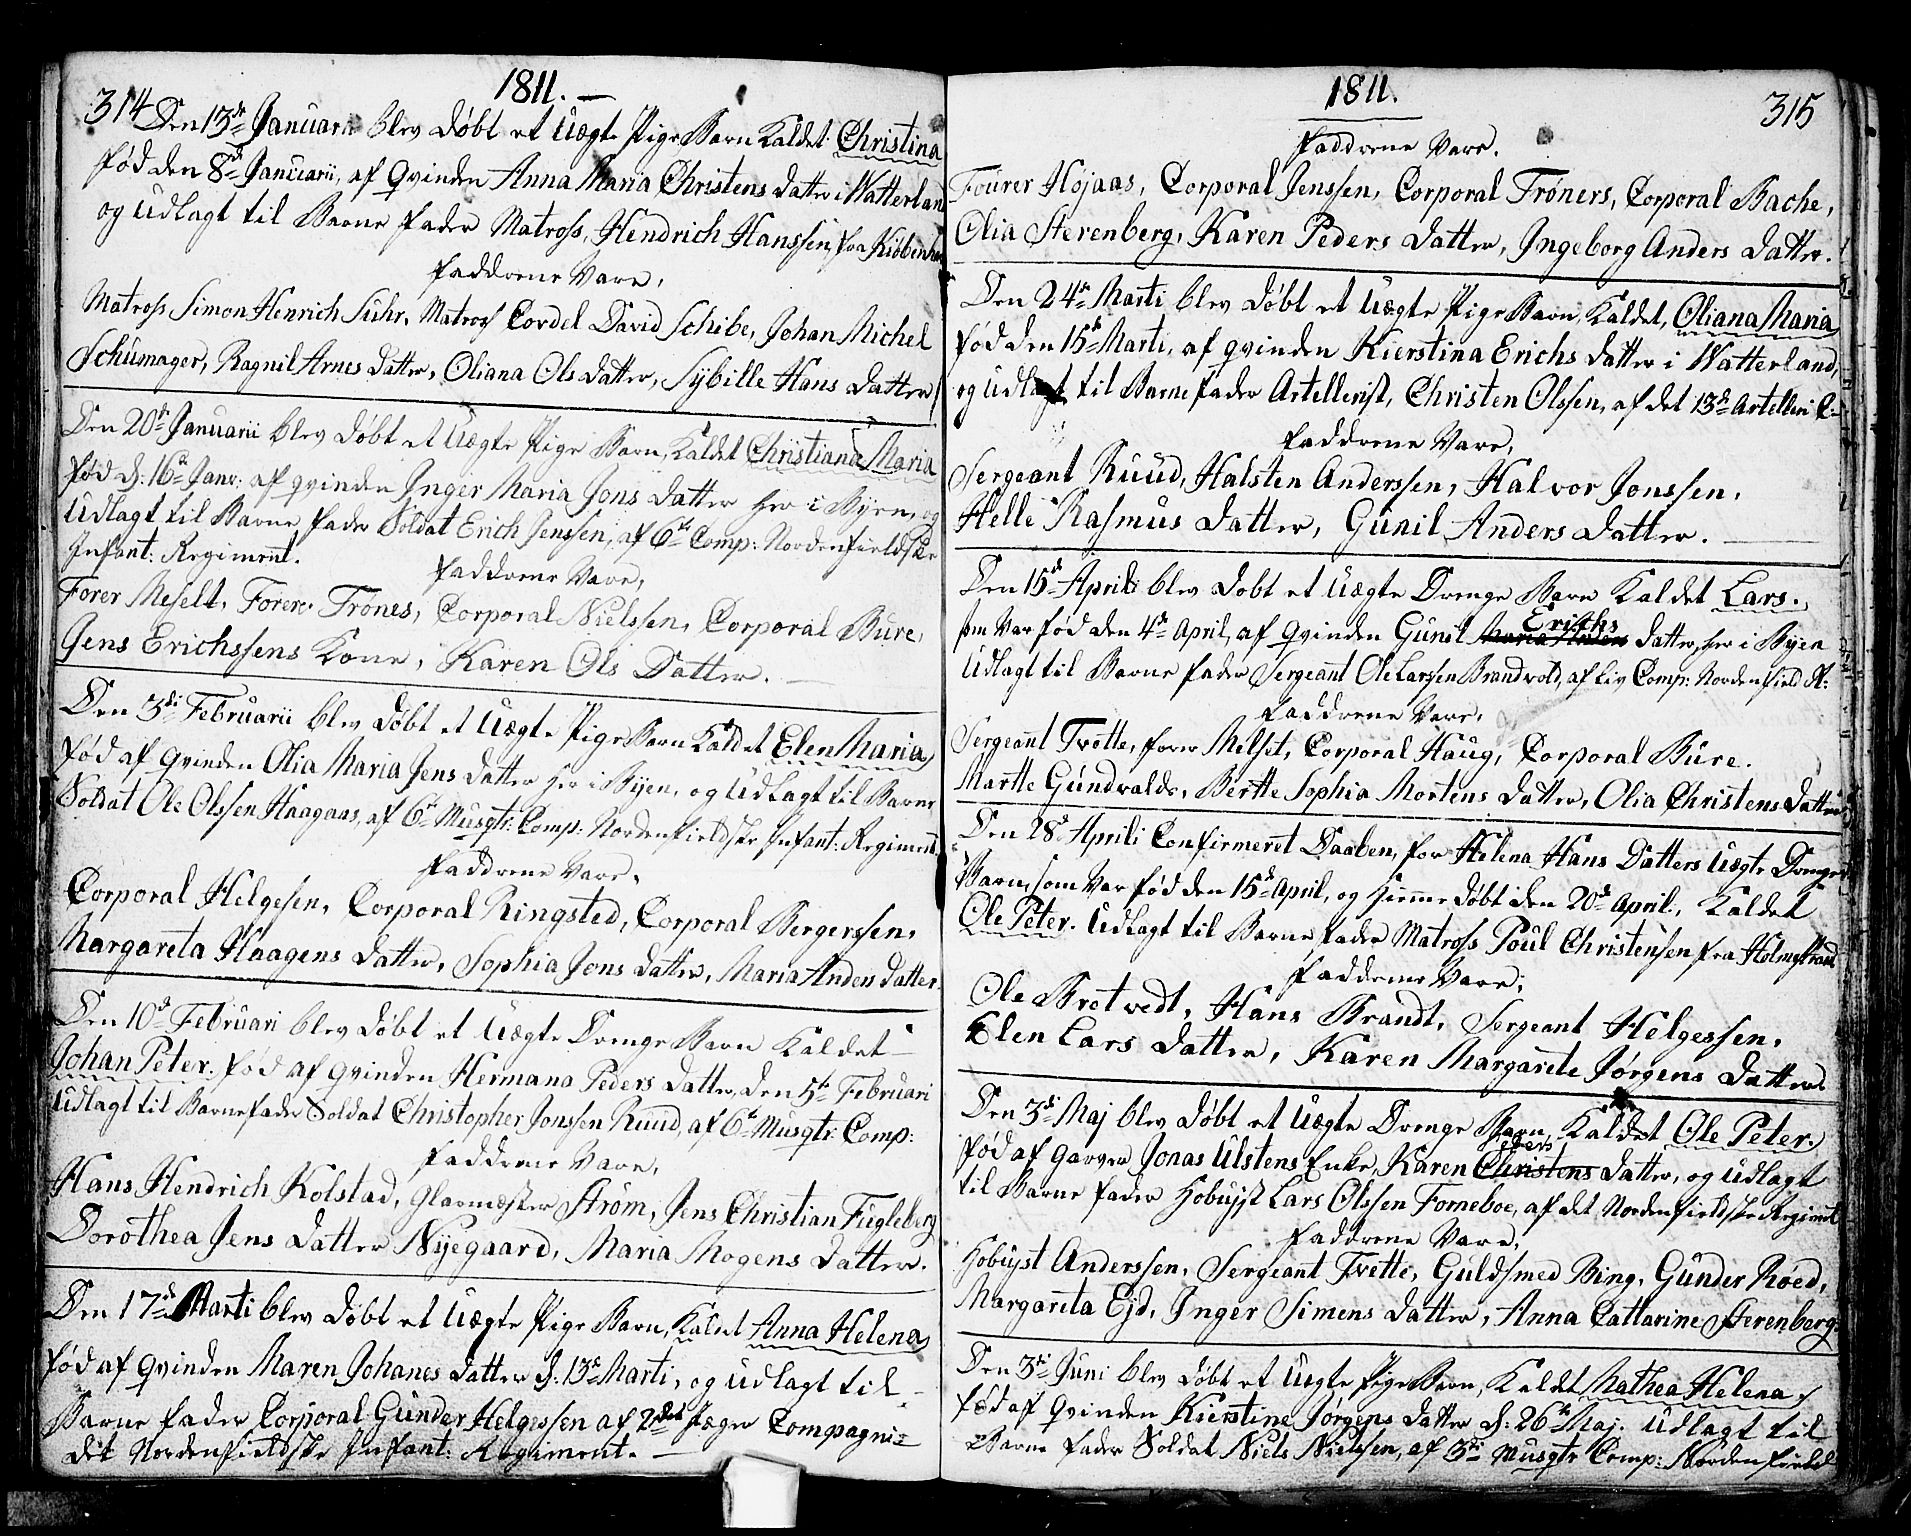 314
1811.
Den 13de Januarii blev døbt et Uægte Pige Barn Kaldet Christina
fød den 8de Januarii, af qvinden Anna Maria Christens datter i Watterland
og udlagt til Barne fader Matross, Hendrich Hanssen, fra Kiøbenha
faddrene Vare,
Matross Simon Henrich Suhr, Matross Cordel David Schibe, Johan Michel
Schumager, Ragnil Arnes datter, Oliana Ols datter, Sÿbille Hans datter
Den 20de Januarii blev døbt et Uægte Pige Barn, Kaldet Christiana Maria
fød d: 16de Janr: af qvinden Inger Maria Jons datter her i Byen, og
Udlagt til Barne fader Soldat Erich Jenssen, af 6te Comp: Nordenfieldske
Infant: Regiment.
faddrene Vare,
Forer Meselt, Forer Trønes, Corporal Nielssen, Corporal Bure,
Jens Erichssens Kone, Karen Ols Datter.
Den 3die Februarii blev døbt et Uægte Pige Barn Kaldet Elen Maria
fød af qvinden Olia Maria Jens datter her i Byen, og Udlagt til Barne
Soldat Ole Olssen Haagaas, af 6te Musqtr: Comp: Nordenfieldske Infant: Regiment
faddrene Vare,
Corporal Helgesen, Corporal Ringsted, Corporal Bergerssen,
Margareta Haagens datter, Sophia Jons datter, Maria Anders datter.
Den 10de Februari blev døbt et Uægte Drenge Barn Kaldet
Johan Peter. fød af qvinden Hermana Peders datter, den 5te Februari
Udlagt til Barnefader Soldat Christopher Jonssen Ruud, af 6te Musqtr: Comp:
faddrene Vare,
Hans Hendrich Kolstad, Glarmester Strøm, Jens Christian Fugleberg
Dorothea Jens datter Nÿegaard, Maria Mogens datter.
Den 17de Marti blev døbt et Uægte Pige Barn, Kaldet Anna Helena
fød af qvinden Maren Johanes datter d: 13de Marti, og udlagt til
Barne fader Corporal Gunder Helgessen af 2det Jæger Compagnie
det Nordenfieldske Infant: Regiment.
1811.
315
faddrene Vare.
Fourer Højaas, Corporal Jenssen, Corporal Trøners, Corporal Bache,
Olia Sterenberg, Karen Peders datter, Ingeborg Anders datter.
Den 24de Marti blev døbt et Uægte Pige Barn, Kaldet, Oliana Maria
fød den 15de Marti, af qvinden Kierstina Erichs datter i Watterland,
og udlagt til Barnefader Artellerist, Christen Olssen, af det 13de Artelleri C
faddrene Vare,
Sergeant Ruud, Halsten Anderssen, Halvor Jonssen,
Helle Rasmus datter, Gunil Anders datter.
Den 15de Aprili blev døbt et Uægte Drenge Barn Kaldet Lars.
som Var fød den 4de April, af qvinden Gunil Erichs datter, her i Byen
Udlagt til Barne fader Sergeant Ole Larssen Brandvold, af Liv Comp: Nordenfield R:
faddrene Vare,
Sergeant Tvette, forer Melset, Corporal Haug, Corporal Bure.
Martte Gundvalds, Bertte Sophia Mortens datter, Olia Christens datter
Den 28de Aprili Confirmeret Daaben, for Helena Hans Datters Uægte Drenge
Barn, som Var fød den 15de April, og Hieme døbt den 20de April, Kaldet
Ole Peter. Udlagt til Barne fader Matross Poul Christensen fra Holmestrand
faddrene Vare,
Ole Bretvedt, Hans Brandt, Sergeant Helgessen,
Elen Lars datter, Karen Margarete Jørgens datter
Den 3die Maj blev døbt et Uægte Drenge Barn, Kaldet Ole Peter.
fød af garver Jonas Ulstens Enke, Karen Christens datter, og udlagt
til Barne fader Hobujst Lars Olssen Forneboe, af det Nordenfieldske Regiment
faddrene Vare,
Hobujst Anderssen, Sergeant Tvette, Guldsmed Bing, Gunder Røed,
Margareta Ejd, Inger Simens datter, Anna Cattarine Sterenberg
Den 3die Juni blev døbt et Uægte Pige Barn, Kaldet Mathea Helena
fød af qvinden Kierstine Jørgens datter d: 26de Maj. Udlagt til
Barne fader Soldat Niels Nielssen, af 3die Musqtr Comp: Nordenfield